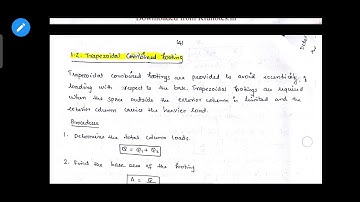 Downloaded from Ktunotes.in
1.2. Trapezoidal Combined footing
Trapezoidal combined footings are provided to avoid eccentricity of
loading with respect to the base. Trapezoidal footings are required
when the space outside the exterior column is limited and the
exterior column carries the heavier load.
Procedure
1. Determine the total column loads.
Q = Q1 + Q2
2. Find the base area of the footing
A = Q